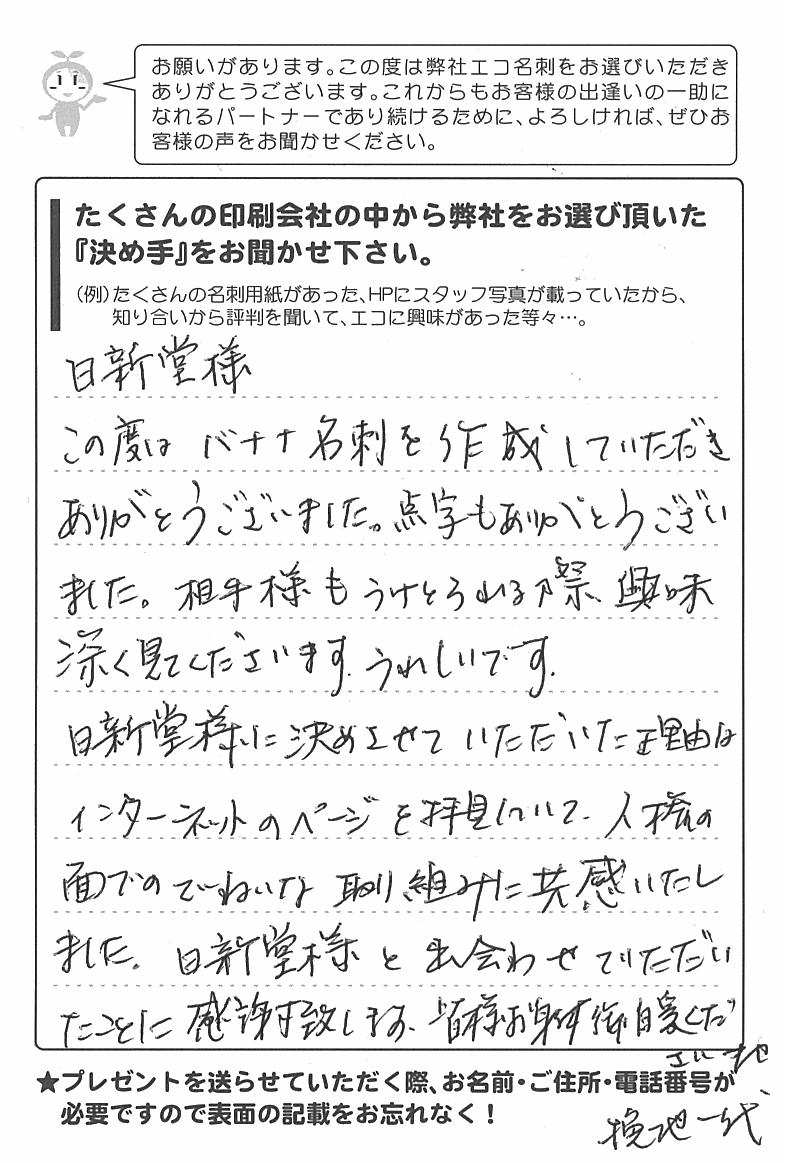 お願いがあります。この度は弊社エコ名刺をお選びいただき
ありがとうございます。これからもお客様の出逢いの一助に
なれるパートナーであり続けるために、よろしければ、ぜひお
客様の声をお聞かせください。
たくさんの印刷会社の中から弊社をお選び頂いた
『決め手』をお聞かせ下さい。
(例)たくさんの名刺用紙があった、HPにスタッフ写真が載っていたから、
知り合いから評判を聞いて、エコに興味があった等々…。
日新堂様
この度は バナナ名刺を作成していただき
ありがとうございました。点字もありがとうござい
ました。相手様もうけとられる際、興味
深く見てくださいます。うれしいです。
日新堂様に決めさせていただいた理由は
インターネットのページを拝見していて、人権の
面でのていねいな取り組みに共感いたし
ました。日新堂様と出会わせていただい
たことに感謝致します。皆様お身体御自愛くだ
さいませ
一代
★プレゼントを送らせていただく際、お名前・ご住所・電話番号が
必要ですので表面の記載をお忘れなく!